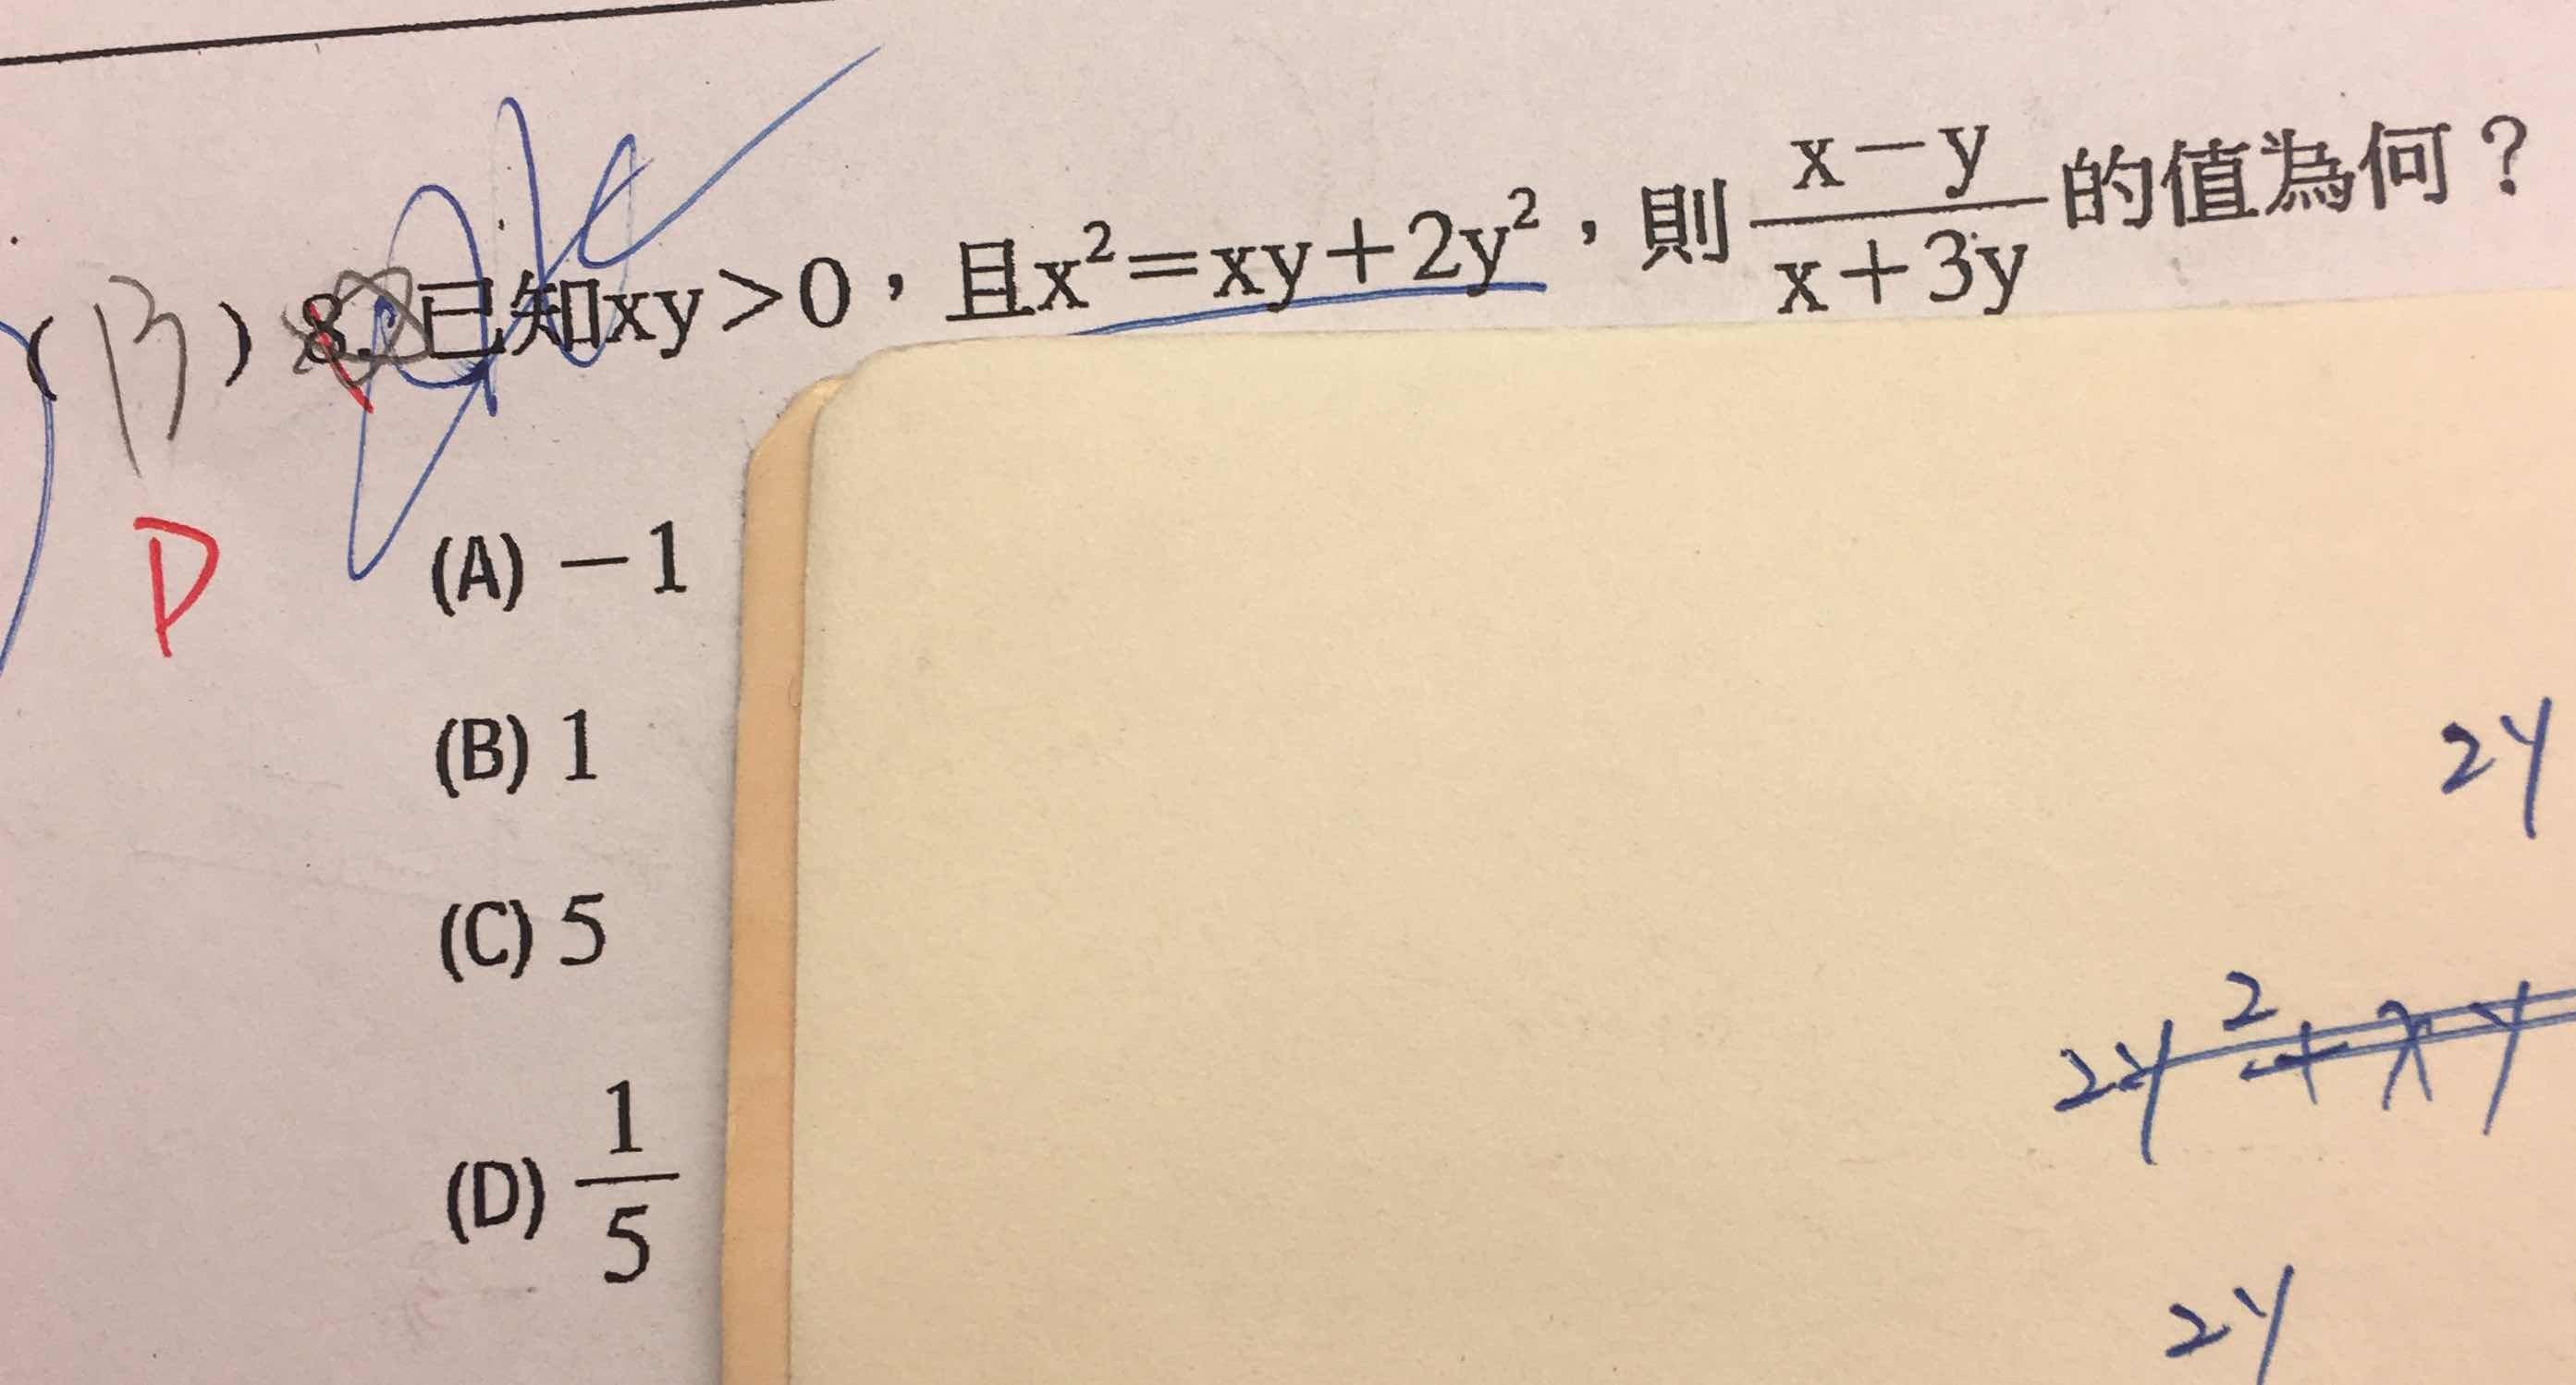 (B) 8. 已知xy>0，且x²=xy+2y²，則\frac{x-y}{x+3y}的值為何？
D
(A) -1
(B) 1
(C) 5
(D) \frac{1}{5}
2y
2y²+xy
2y